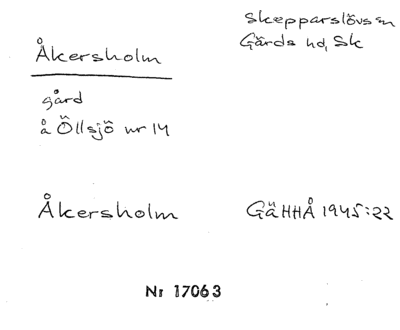 Åkersholm
Skepparslövs sn
Gärds hd, Sk
gård
å Öllsjö nr 14
Åkersholm
GäHHÅ 1945:22
Nr 17063